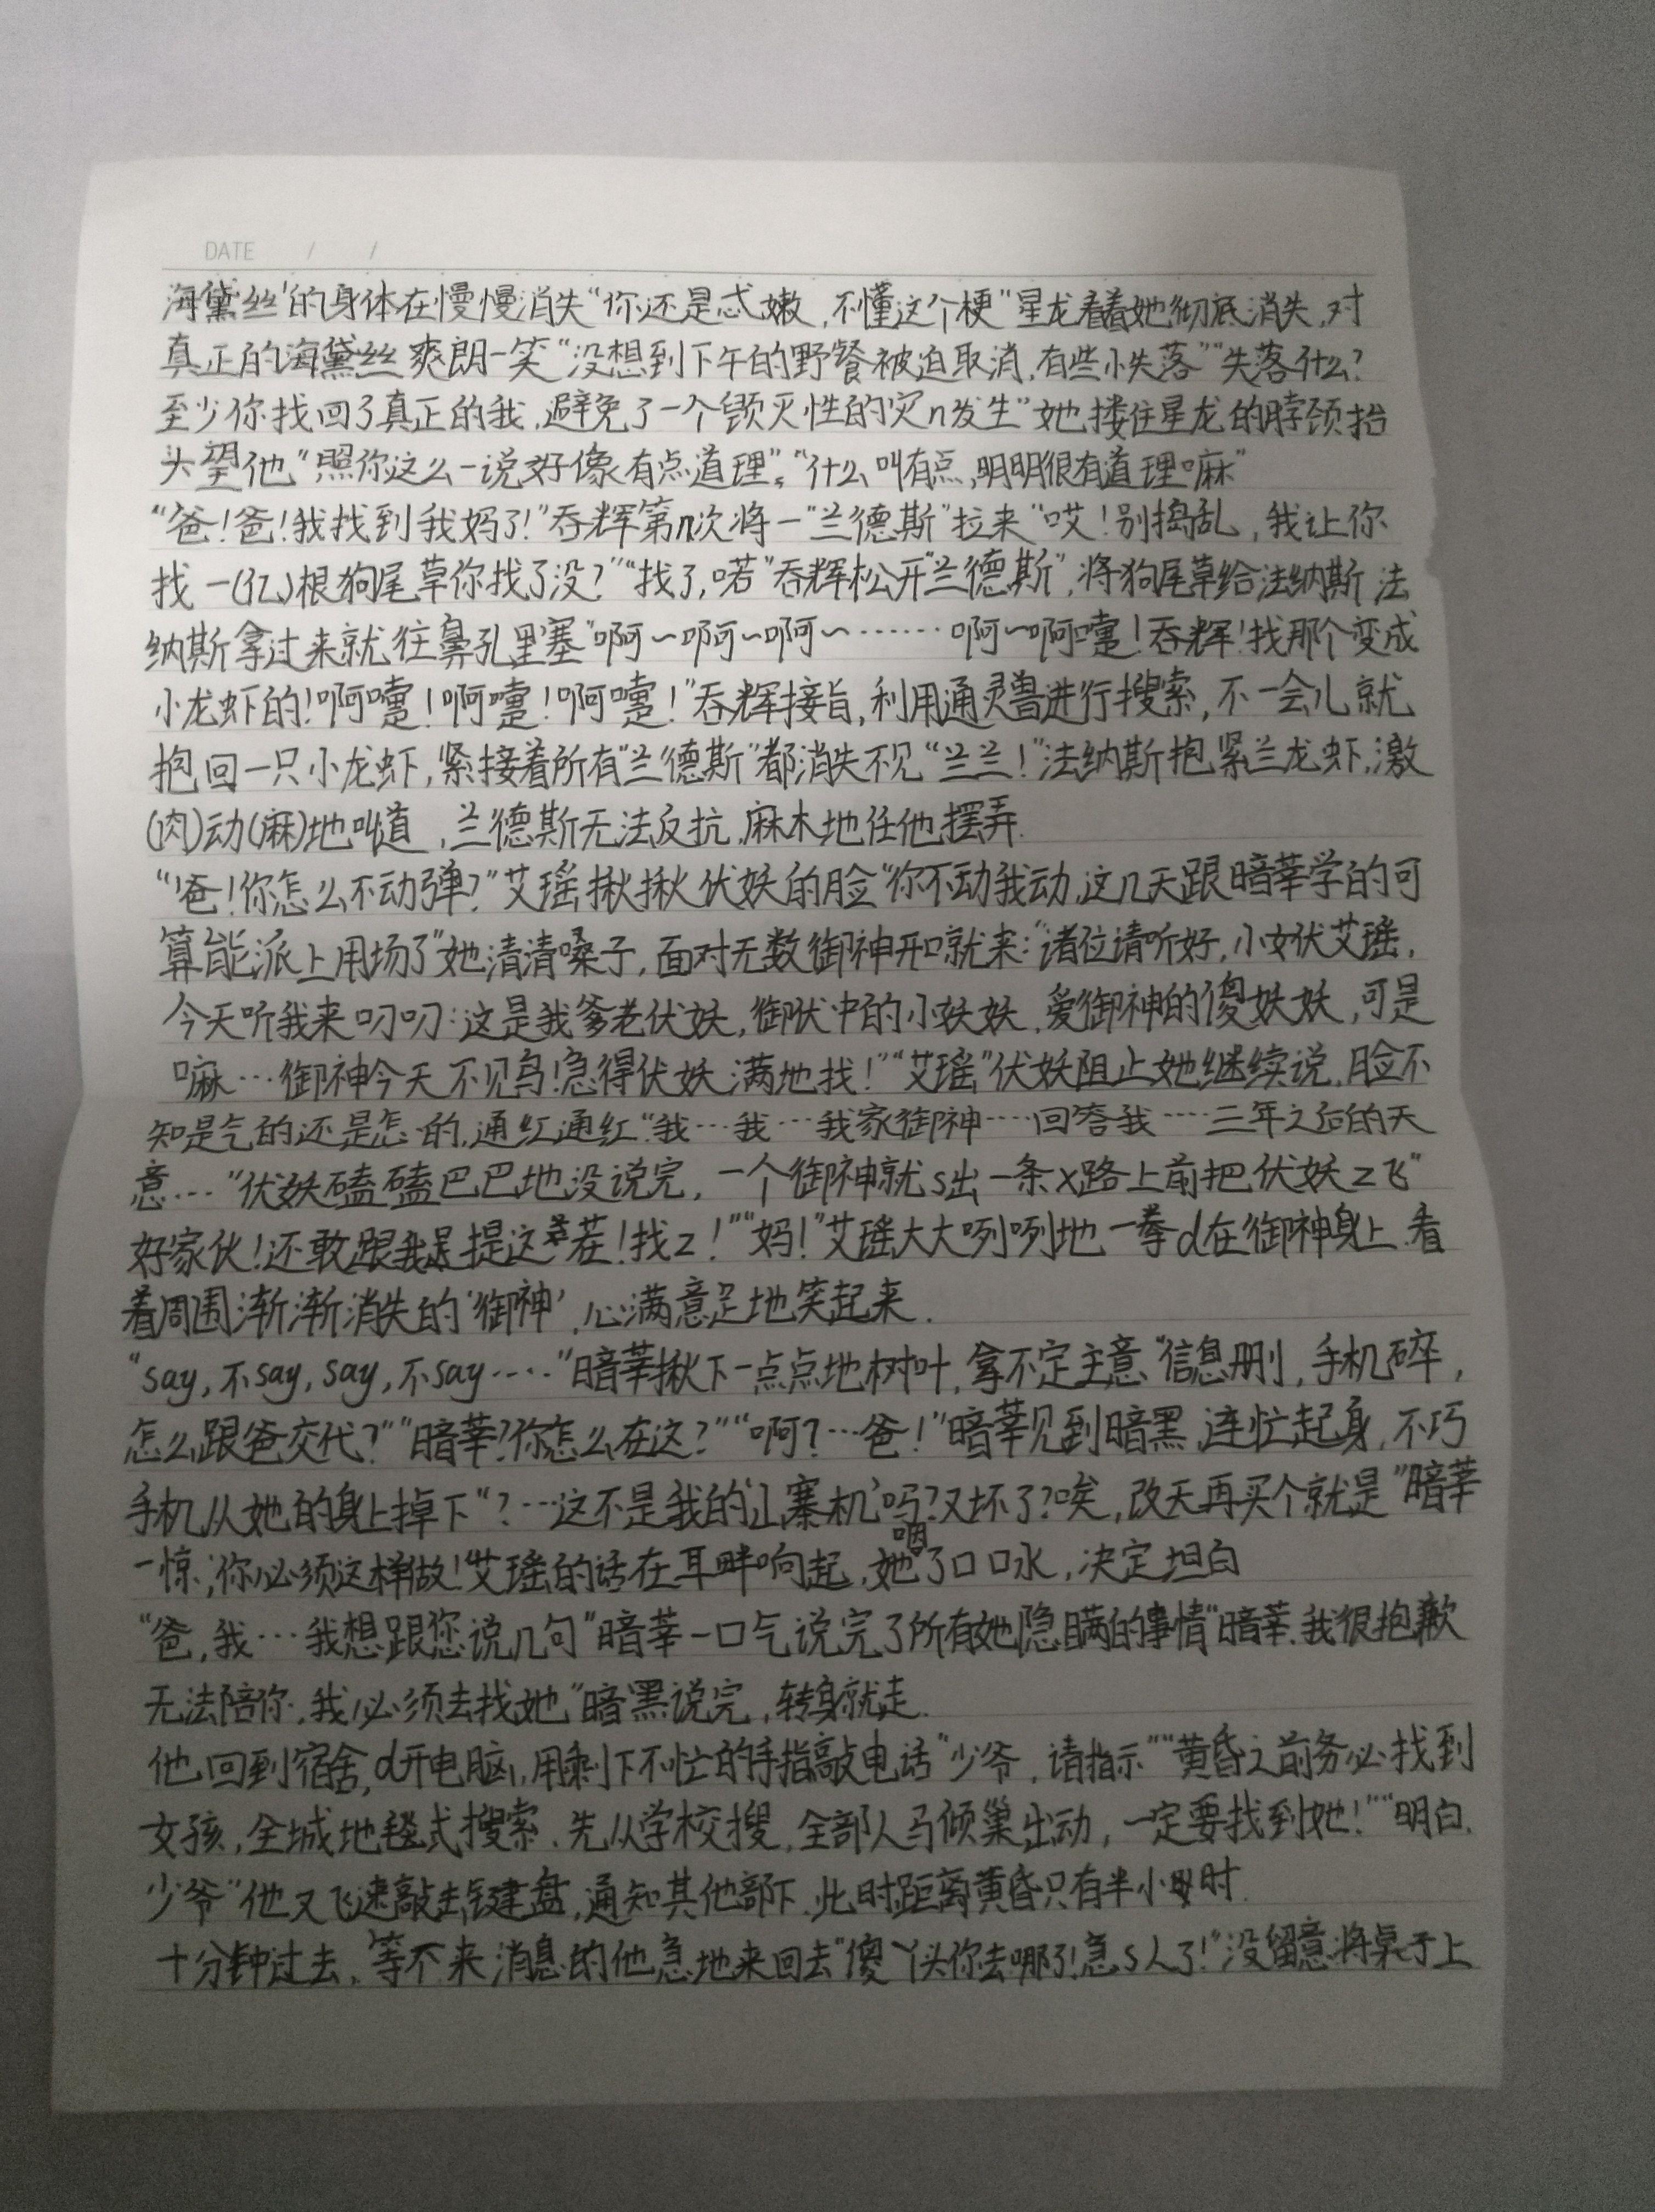 DATE / /
海黛丝'的身体在慢慢消失“你还是忒嫩,不懂这个梗”星龙看着她彻底消失,对
真正的海黛丝爽朗一笑“没想到下午的野餐被迫取消,有些小失落”“失落什么?
至少你找回了真正的我,避免了一个毁灭性的灾n发生”她搂住星龙的脖颈抬
头望他“照你这么一说好像有点道理”。“什么叫有点,明明很有道理嘛”
“爸!爸!我找到我妈了!”吞辉第n次将一“兰德斯”拉来“哎!别捣乱,我让你
找一(亿)根狗尾草你找了没?”“找了,喏”吞辉松开“兰德斯”,将狗尾草给法纳斯 法
纳斯拿过来就往鼻孔里塞“啊~啊~啊~……啊~啊嚏!吞辉!找那个变成
小龙虾的!啊嚏!啊嚏!啊嚏!”吞辉接旨,利用通灵兽进行搜索,不一会儿就
抱回一只小龙虾,紧接着所有“兰德斯”都消失不见“兰兰!”法纳斯抱紧兰龙虾,激
(肉)动(麻)地叫道,兰德斯无法反抗,麻木地任他摆弄.
“爸!你怎么不动弹?”艾瑶揪揪伏妖的脸“你不动我动,这几天跟暗莘学的可
算能派上用场了”她清清嗓子,面对无数御神开口就来:“诸位请听好,小女伏艾瑶,
今天听我来叨叨:这是我爹老伏妖,御伏中的小妖妖,爱御神的傻妖妖,可是
嘛…御神今天不见鸟!急得伏妖满地找!”“艾瑶”伏妖阻止她继续说,脸不
知是气的还是怎的,通红通红“我…我…我家御神……回答我……三年之后的天
意…”伏妖磕磕巴巴地没说完,一个御神就s出一条x路上前把伏妖z飞“
好家伙!还敢跟我提这茬!找z!”“妈!”艾瑶大大咧咧地一拳d在御神身上,看
着周围渐渐消失的‘御神’,心满意足地笑起来.
“say,不say,say,不say……”暗莘揪下一点点地树叶,拿不定主意“信息删,手机碎,
怎么跟爸交代?”“暗莘?你怎么在这?”“啊?…爸!”暗莘见到暗黑,连忙起身,不巧
手机从她的身上掉下“?…这不是我的‘山寨机’吗?又坏了?唉,改天再买个就是”暗莘
一惊,‘你必须这样做!’艾瑶的话在耳畔响起,她咽了口口水,决定坦白
“爸,我…我想跟您说几句”暗莘一口气说完了所有她隐瞒的事情“暗莘,我很抱歉
无法陪你,我必须去找她”暗黑说完,转身就走.
他回到宿舍,d开电脑,用剩下不忙的手指敲电话“少爷,请指示”“黄昏之前务必找到
女孩,全城地毯式搜索,先从学校搜,全部人马倾巢出动,一定要找到她!”“明白,
少爷”他又飞速敲击键盘,通知其他部下,此时距离黄昏只有半小时.
十分钟过去,等不来消息的他急地来回去“傻丫头你去哪了!急s人了!”没留意将桌子上